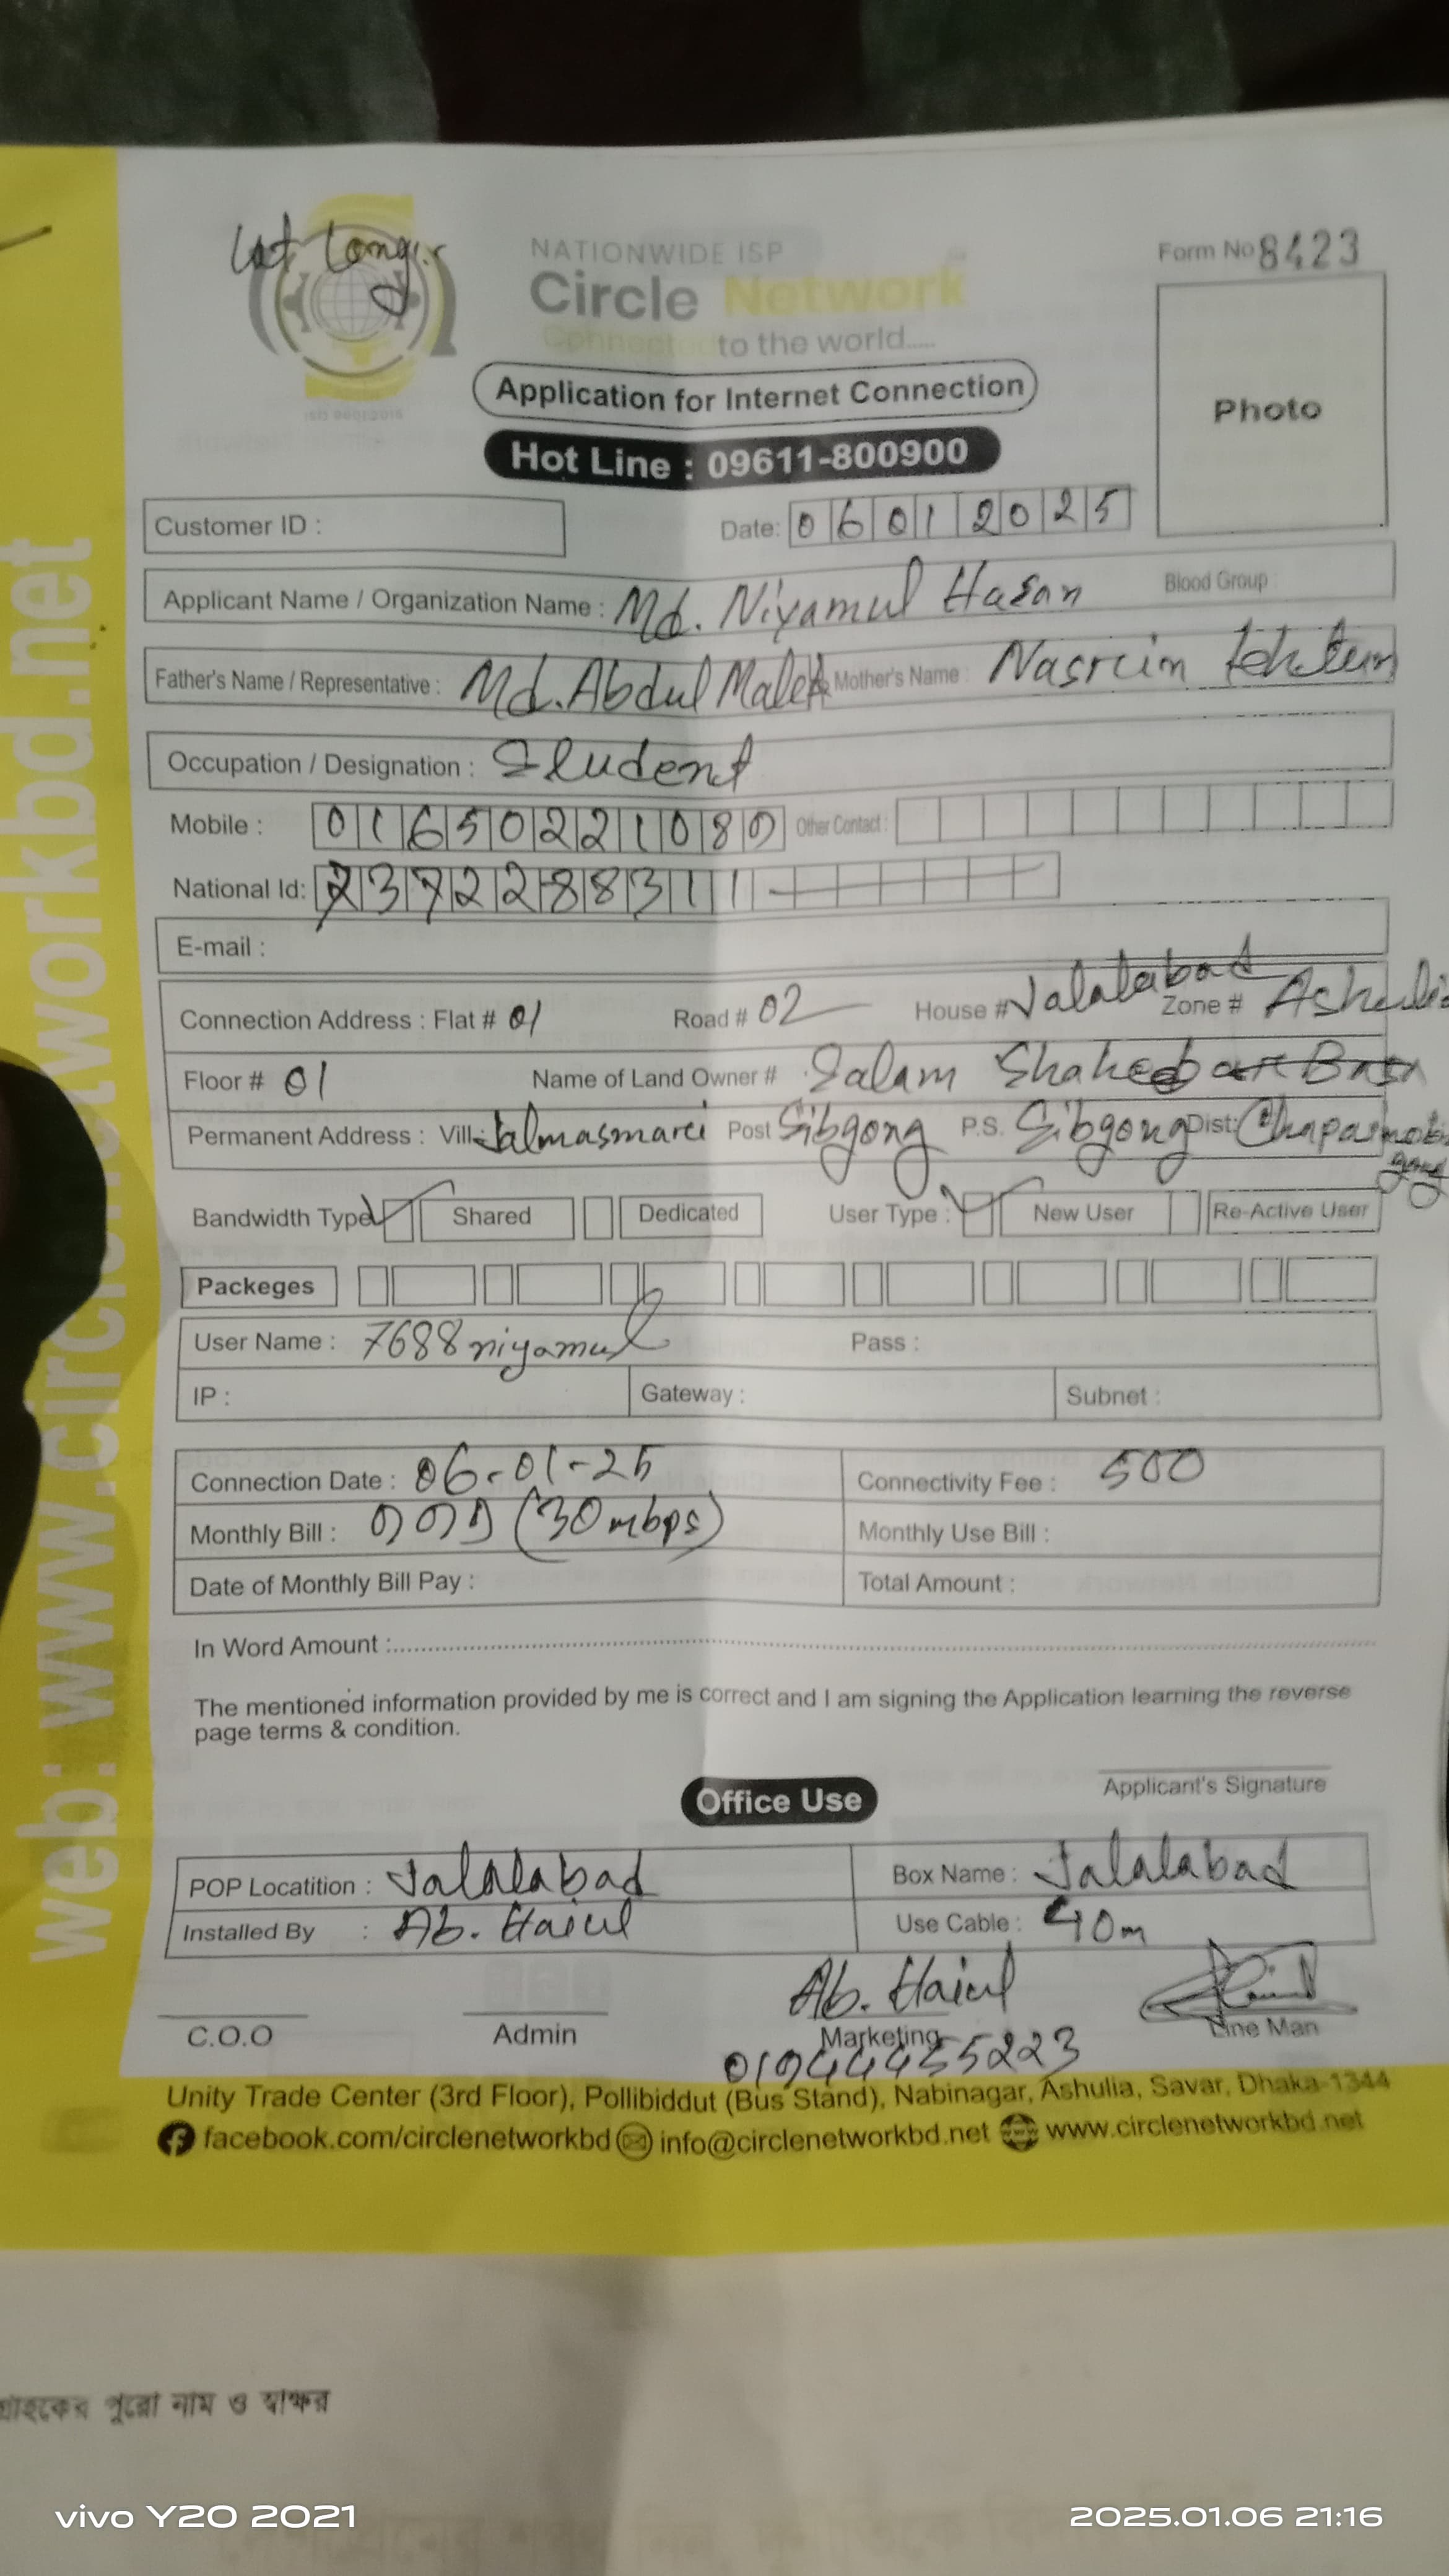 Lat Long:
NATIONWIDE ISP
Circle Network
Connected to the world.....
Form No 8423
Application for Internet Connection
Photo
Hot Line : 09611-800900
Customer ID :
Date: 06012025
Applicant Name / Organization Name : Md. Niyamul Hasan Blood Group :
Father's Name / Representative : Md. Abdul Malek Mother's Name : Nasrin
Occupation / Designation : Student
Mobile : 01650221089 Other Contact :
National Id: 2372288311
E-mail :
Connection Address : Flat # 01 Road # 02 House # Jalalabad Zone # Ashulia
Floor # 01 Name of Land Owner # Salam
Permanent Address : Vill: Post Sibgong P.S. Sibgong Dist:
Bandwidth Type Shared Dedicated User Type : New User Re-Active User
Packeges
User Name : 7688niyamul Pass :
IP : Gateway : Subnet :
Connection Date : 06-01-25 Connectivity Fee : 500
Monthly Bill : 999 (30mbps) Monthly Use Bill :
Date of Monthly Bill Pay : Total Amount :
In Word Amount :
The mentioned information provided by me is correct and I am signing the Application learning the reverse
page terms & condition.
Applicant's Signature
Office Use
POP Locatition : Jalalabad Box Name : Jalalabad
Installed By : Ab. Use Cable : 40m
Ab.
C.O.O Admin Marketing Line Man
01944455223
Unity Trade Center (3rd Floor), Pollibiddut (Bus Stand), Nabinagar, Ashulia, Savar, Dhaka-1344
facebook.com/circlenetworkbd info@circlenetworkbd.net www.circlenetworkbd.net
web: www.circlenetworkbd.net
গ্রাহকের পুরো নাম ও স্বাক্ষর
vivo Y20 2021
2025.01.06 21:16